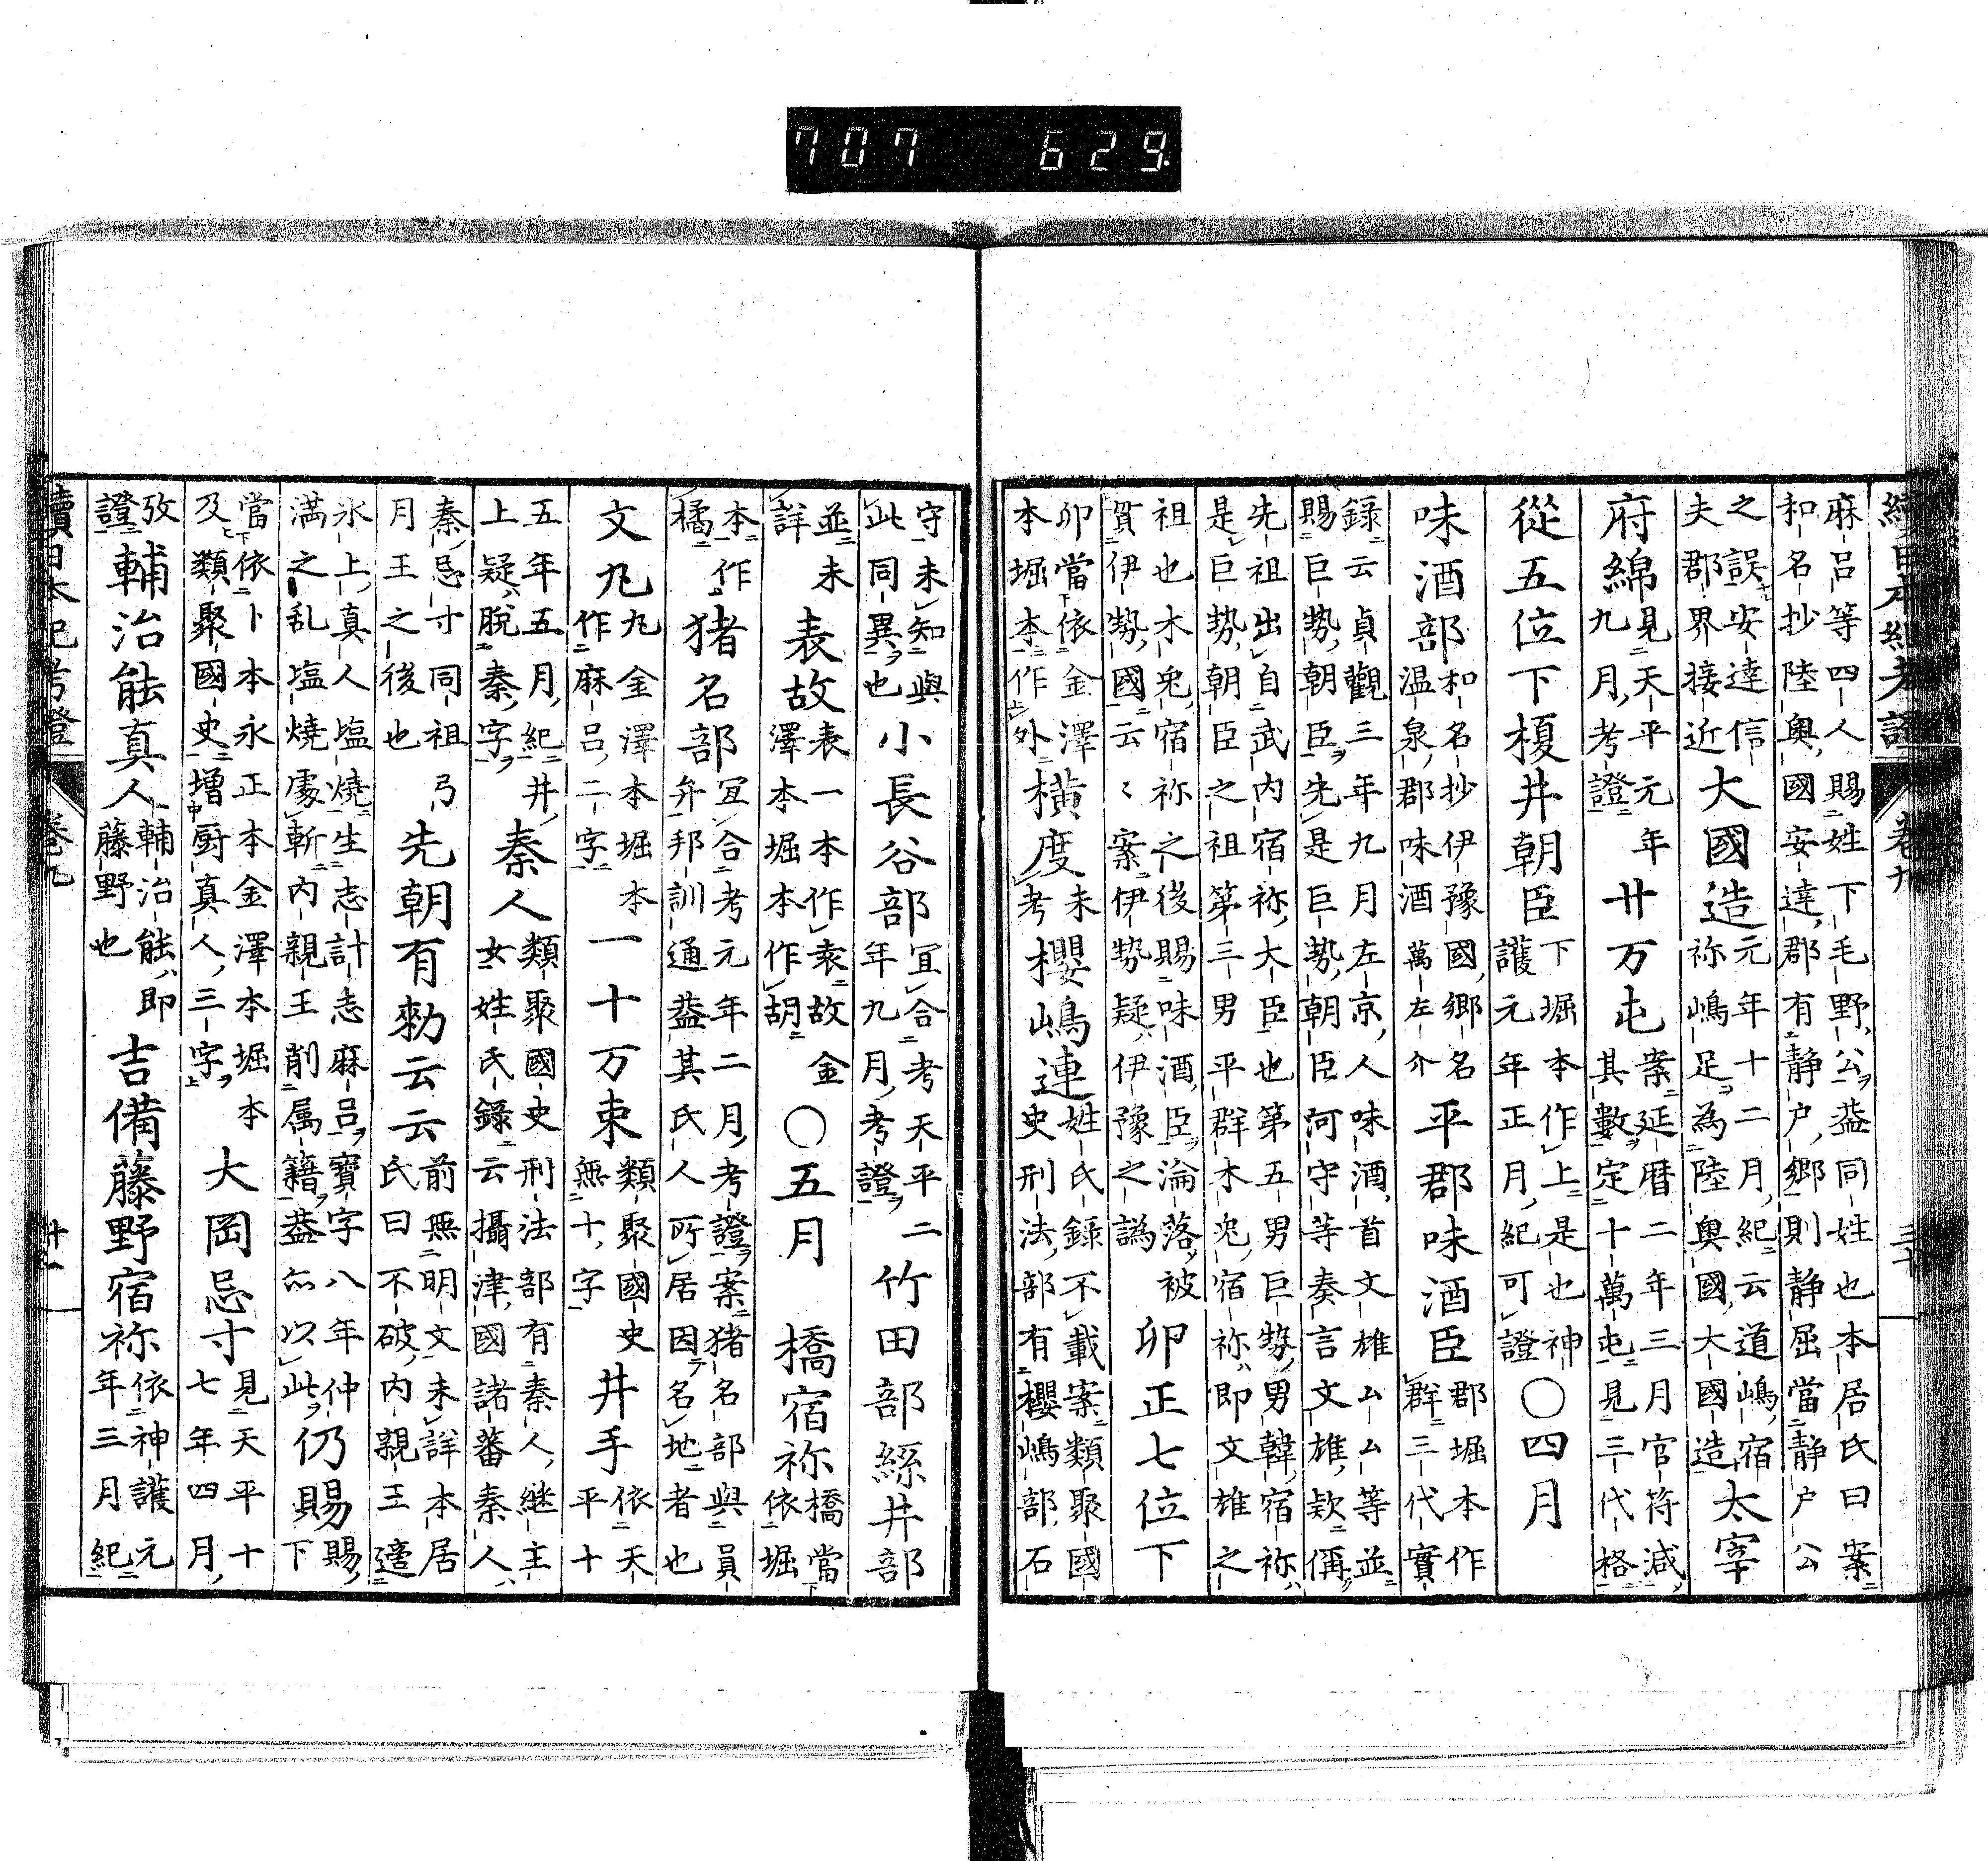 707 629
續日本紀考證 卷九 三十
麻呂等四人賜姓下毛野公蓋同姓也本居氏曰案
和名抄陸奧國安達郡有靜戶鄉則靜屈當靜戶公
之誤安達信
夫郡界接近
大國造
元年十二月紀云道嶋宿
祢嶋足為陸奧國大國造
太宰
府綿
見天平元年
九月考證
廿万屯
案延曆二年三月官符減
其數定十萬屯見三代格
從五位下榎井朝臣
下堀本作上是也神
護元年正月紀可證
〇四月
味酒部
和名抄伊豫國鄉名
温泉郡味酒萬左介
平郡味酒臣
郡堀本作
群三代實
錄云貞觀三年九月左京人味酒首文雄厶厶等並
賜巨勢朝臣先是巨勢朝臣河守等奏言文雄欵稱
先祖出自武内宿祢大臣也第五男巨勢男韓宿祢
是巨勢朝臣之祖第三男平群木兎宿祢即文雄之
祖也木兎宿祢之後賜味酒臣淪落被
貿伊勢國云〻案伊勢疑伊豫之譌
卯正七位下
卯當依金澤
本堀本作外
橫度
未
考
櫻嶋連
姓氏錄不載案類聚國
史刑法部有櫻嶋部石
守未知與
此同異也
小長谷部
宜合考天平二
年九月考證
竹田部絲井部
並未
詳
表故
表一本作袁故金
澤本堀本作胡
〇五月
橋宿祢
橋當
依堀
本作
橘
猪名部
宜合考元年二月考證案猪名部與員
弁邦訓通蓋其氏人所居因名地者也
文九
九金澤本堀本
作麻呂二字
一十万束
類聚國史
無十字
井手
依天
平十
五年五月紀井
上疑脫秦字
秦人
類聚國史刑法部有秦人繼主
女姓氏錄云攝津國諸蕃秦人
秦忌寸同祖弓
月王之後也
先朝有勑云云
前無明文未詳本居
氏曰不破内親王適
氷上真人塩燒生志計志麻呂寶字八年仲
滿之乱塩燒處斬内親王削属籍蓋亦以此
仍賜
賜
下
當依卜本永正本金澤本堀本
及類聚國史增厨真人三字
大岡忌寸
見天平十
七年四月
攷
證
輔治能真人
輔治能即
藤野也
吉備藤野宿祢
依神護元
年三月紀
續日本紀考證 卷九